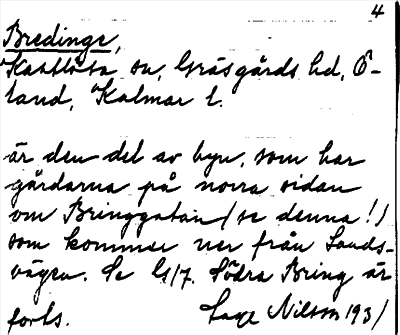 4
Bredinge,
Kastlösa sn, Gräsgårds hd, Ö-
land, Kalmar l.
är den del av byn, som har
gårdarna på norra sidan
om Bringgatan (se denna!)
som kommer ner från Lands-
vägen. Se G/7. Södra Bring är
forts. Sage Nilson 1931